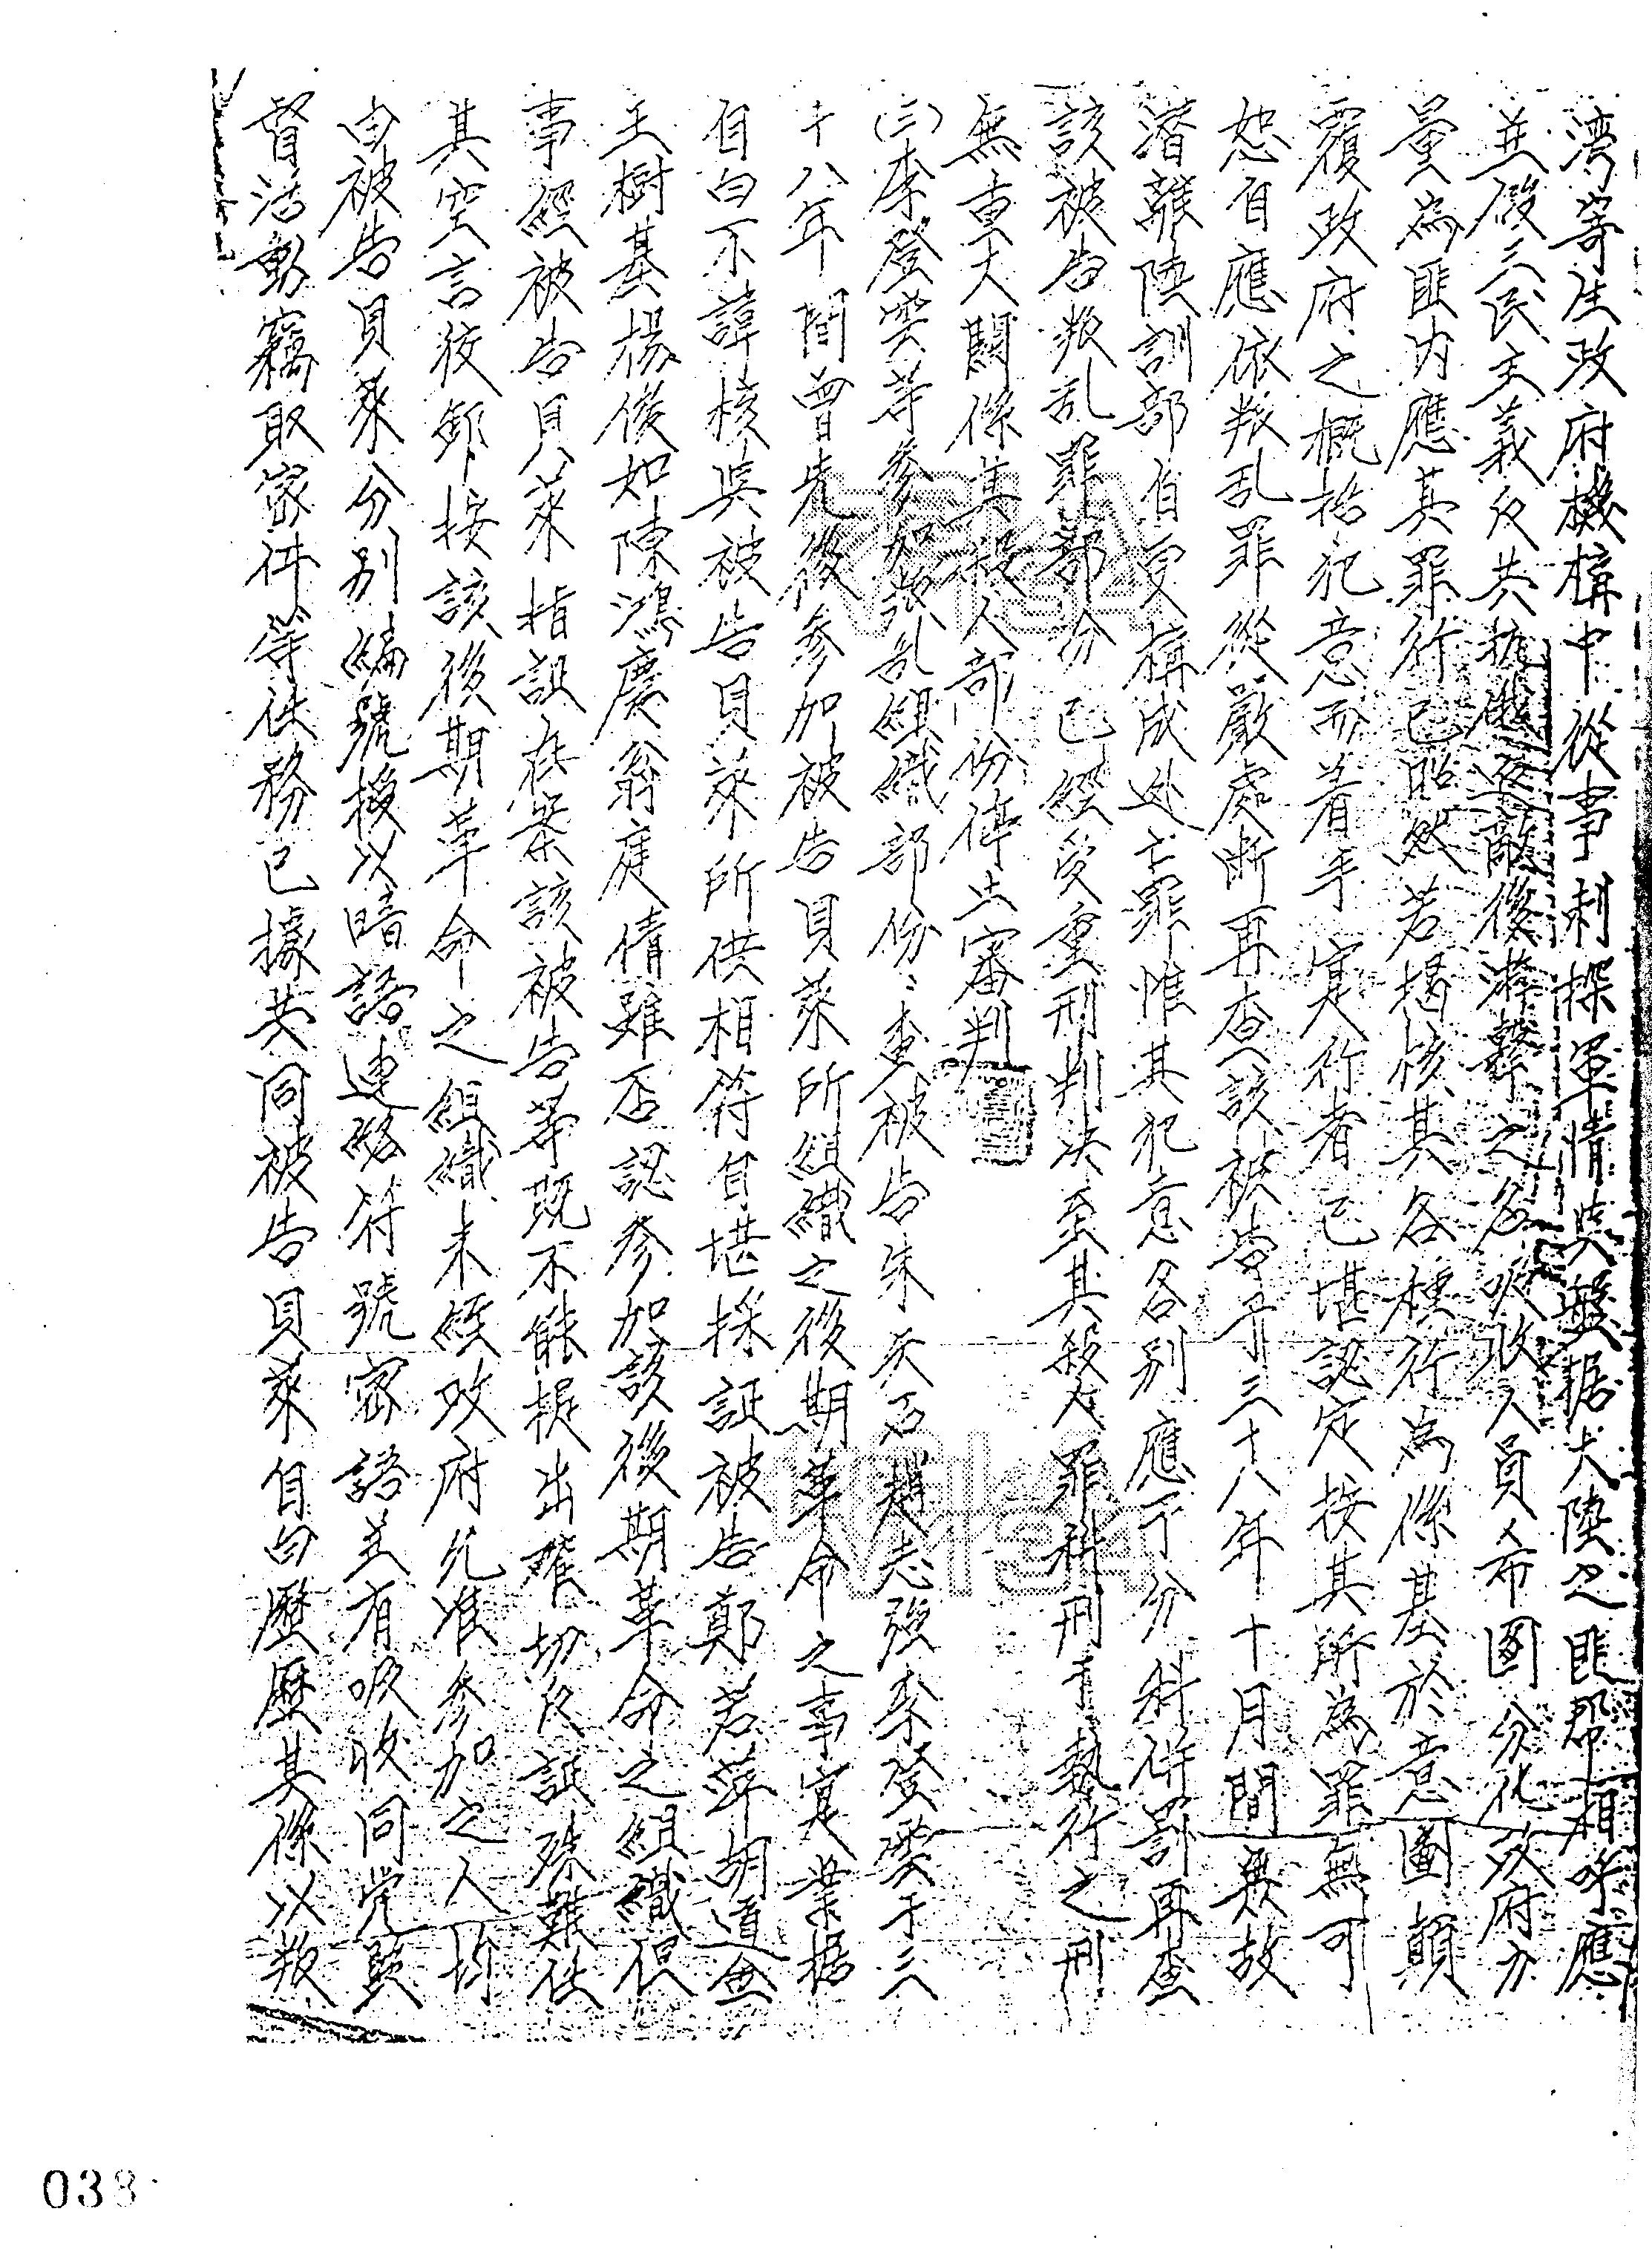 湾寄生政府機構中從事刺探軍情與盤据大陸之匪帮相呼應
並假三民主義反共抗俄逐敵後游擊之名吸收人員希圖分化政府力
量為匪内應其罪行已昭然若揭核其各種行為係基於意圖顛
覆政府之概括犯意而着手寔行者已堪認定按其所為罪無可
恕自應依叛乱罪從嚴處断再查該被告于三十八年十月間無故
潜離陸訓部自更構成逃亡罪惟其犯意各别應予分科併罰再查
該被告叛乱罪部分已經受重刑判决至其殺人罪科刑于執行之刑
無重大関係其殺人部份停止審判
(三)李登雲等參加叛乱組織部份:查被告朱天石趙志強李登雲于三
十八年間曾先後參加被告貝萊所組織之後期革命之事寔業據
自白不諱核與被告貝萊所供相符自堪採証被告鄭若萍胡道無
王樹基楊俊如陳鴻慶翁庭倩雖否認參加該後期革命之組織但
事經被告貝萊指証在案該被告等既不能提出確切反証殊難任
其空言狡卸按該後期革命之組織未經政府允准參加之人均
由被告貝萊分别編號授以暗語連絡符號密語並有吸收同党監
督活動竊取密件等任務已據共同被告貝萊自白歷歷其係以叛
038